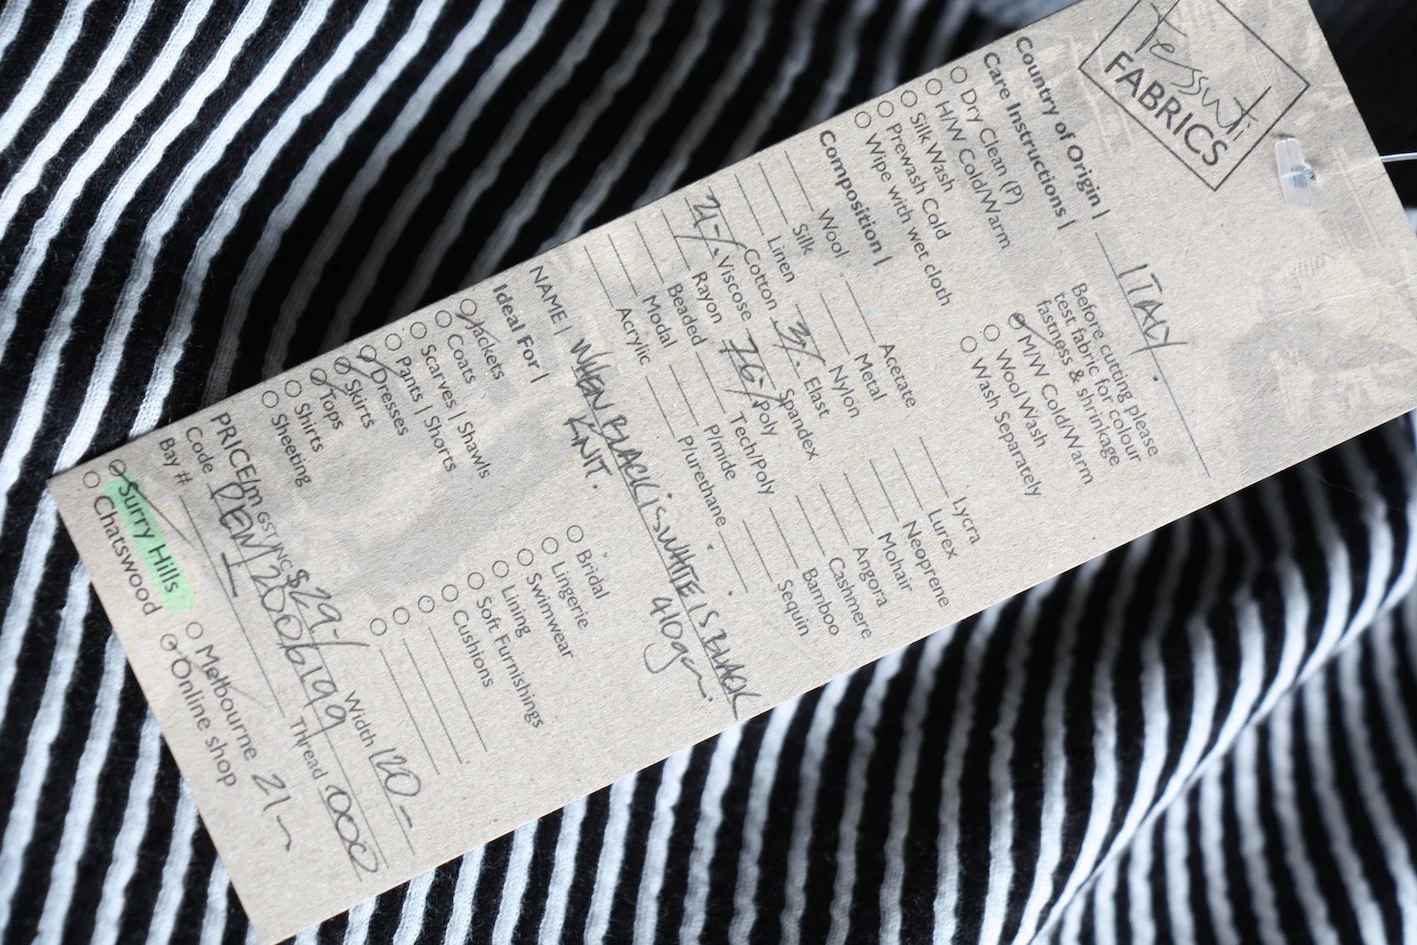 Tessuti
FABRICS
Country of Origin | ITALY.
Care Instructions |
Before cutting please
test fabric for colour
fastness & shrinkage
Dry Clean (P)
H/W Cold/Warm
Silk Wash
Prewash Cold
Wipe with wet cloth
M/W Cold/Warm
Wool Wash
Wash Separately
Composition |
Wool Acetate Lycra
Silk Metal Lurex
Linen Nylon Neoprene
Cotton 3% Elast Mohair
21% Viscose Spandex Angora
Rayon 76% Poly Cashmere
Beaded Tech/Poly Bamboo
Modal P/mide Sequin
Acrylic P/urethane
NAME | WHEN BLACK IS WHITE IS BLACK
KNIT. 410gm.
Ideal For |
Jackets Bridal
Coats Lingerie
Scarves | Shawls Swimwear
Pants | Shorts Lining
Dresses Soft Furnishings
Skirts Cushions
Tops
Shirts
Sheeting
PRICE/m GST INC $29-/ Width 120-
Code Thread 000
Bay #
Surry Hills Melbourne 21
Chatswood Online shop